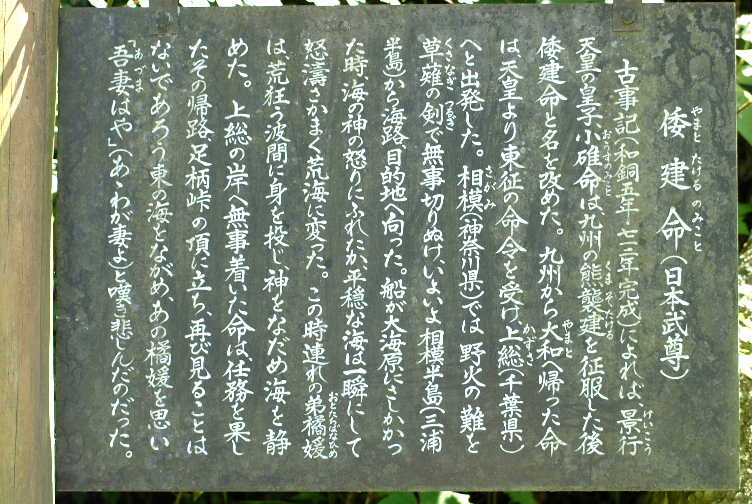 倭建命(日本武尊)
やまと たける のみこと
古事記(和銅五年 七一二年完成)によれば、景行
けいこう
天皇の皇子小碓命は、九州の熊襲建を征服した後
おうすのみこと
くまそたける
倭建命と名を改めた。 九州から大和へ帰った命
やまと
は天皇より東征の命令を受け上総(千葉県)
かずさ
へと出発した。 相模(神奈川県)では 野火の難を
さがみ
草薙の剣で無事切りぬけ、いよいよ相模半島(三浦
くさなぎ つるぎ
半島)から海路、目的地へ向った。船が大海原にさしかかっ
た時、海の神の怒りにふれたか、平穏な海は一瞬にして
怒濤さかまく荒海に変った。 この時連れの弟橘媛
おとたちばなひめ
は、荒狂う波間に身を投じ神をなだめ海を静
めた。 上総の岸へ無事着いた命は、任務を果し
たその帰路、足柄峠の頂に立ち、再び見ることは
ないであろう東の海とながめ、あの橘媛を思い
「吾妻はや」(あゝわが妻よ)と嘆き悲しんだのだった。
あづま